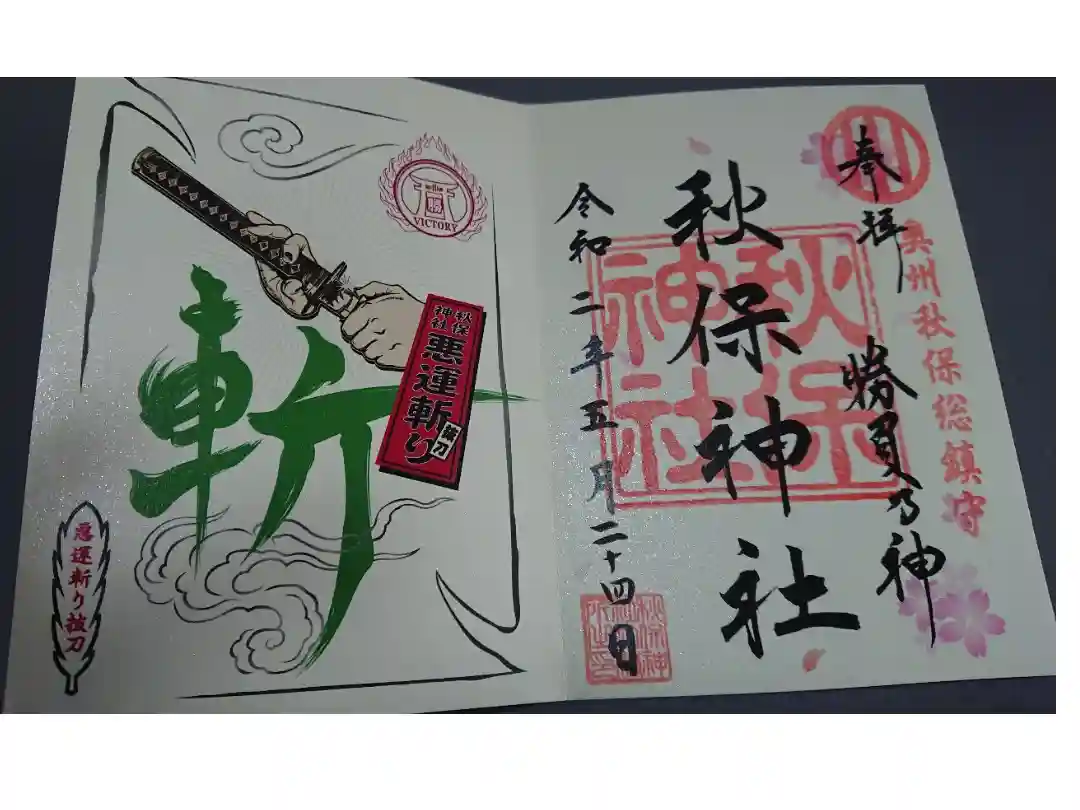 奉拝
奥州秋保総鎮守
勝負乃神
秋保神社
秋保神社
令和二年五月二十四日
勝
VICTORY
斬
秋保神社
悪運斬り
抜刀
悪運斬り抜刀